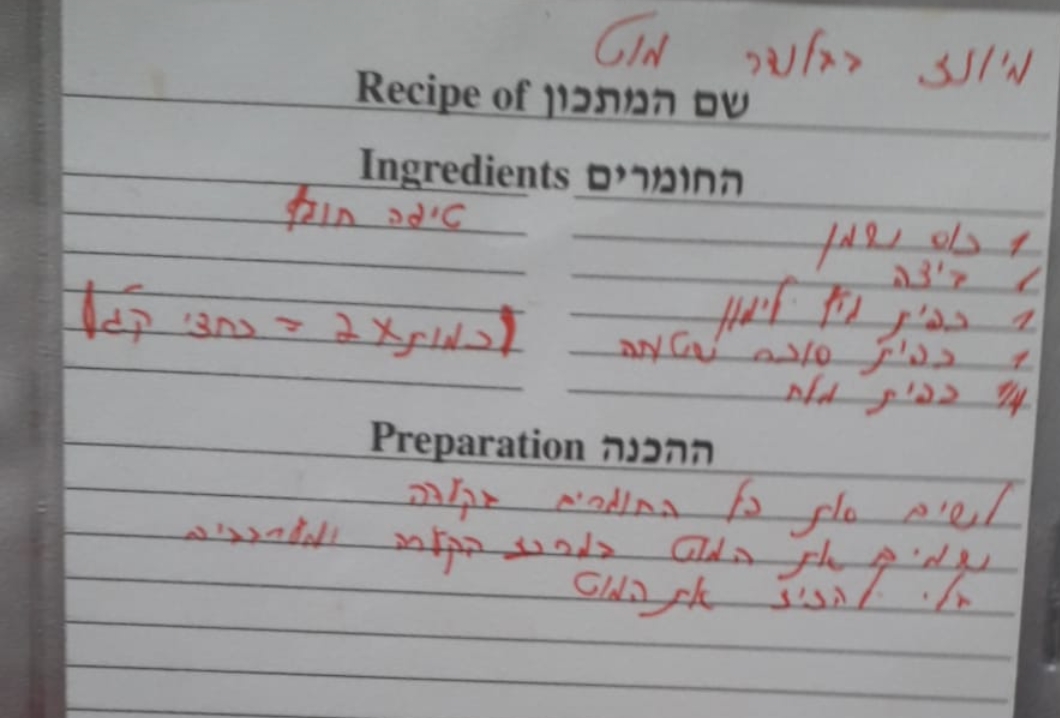 מיונז בבלנדר מוט
שם המתכון Recipe of
החומרים Ingredients
1 כוס שמן
1 ביצה
1 כפית מיץ לימון
1 כפית סוכר שטוחה
1/4 כפית מלח
טיפה חומץ
(כמות x 2 = כחצי קג)
ההכנה Preparation
לשים את כל החומרים בקערה
שמים את המוט במרכז הקערה ומערבבים
בלי להזיז את המוט